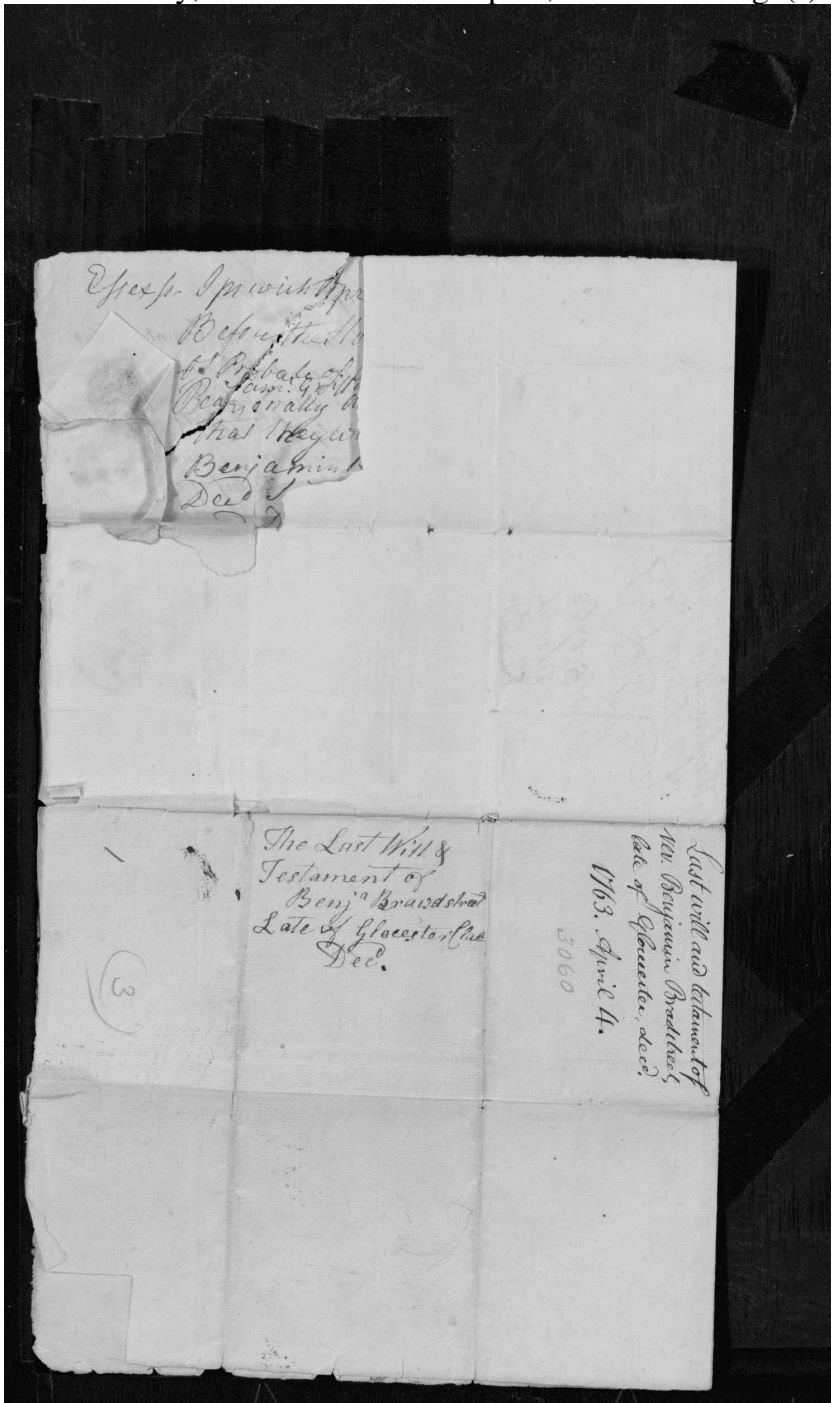 Essex ss. Ipswich Apr
Before the Ho
of Probate of
Sam.
Pearsonally a
that they w
Benjamin
Decd
The Last Will &
Testament of
Benjª Brawdstreet
Late of Glocester
Decd.
Last will and testament of
Rev. Benjamin Bradstreet,
late of Gloucester, decd.
1763. April 4.
3060
1
3